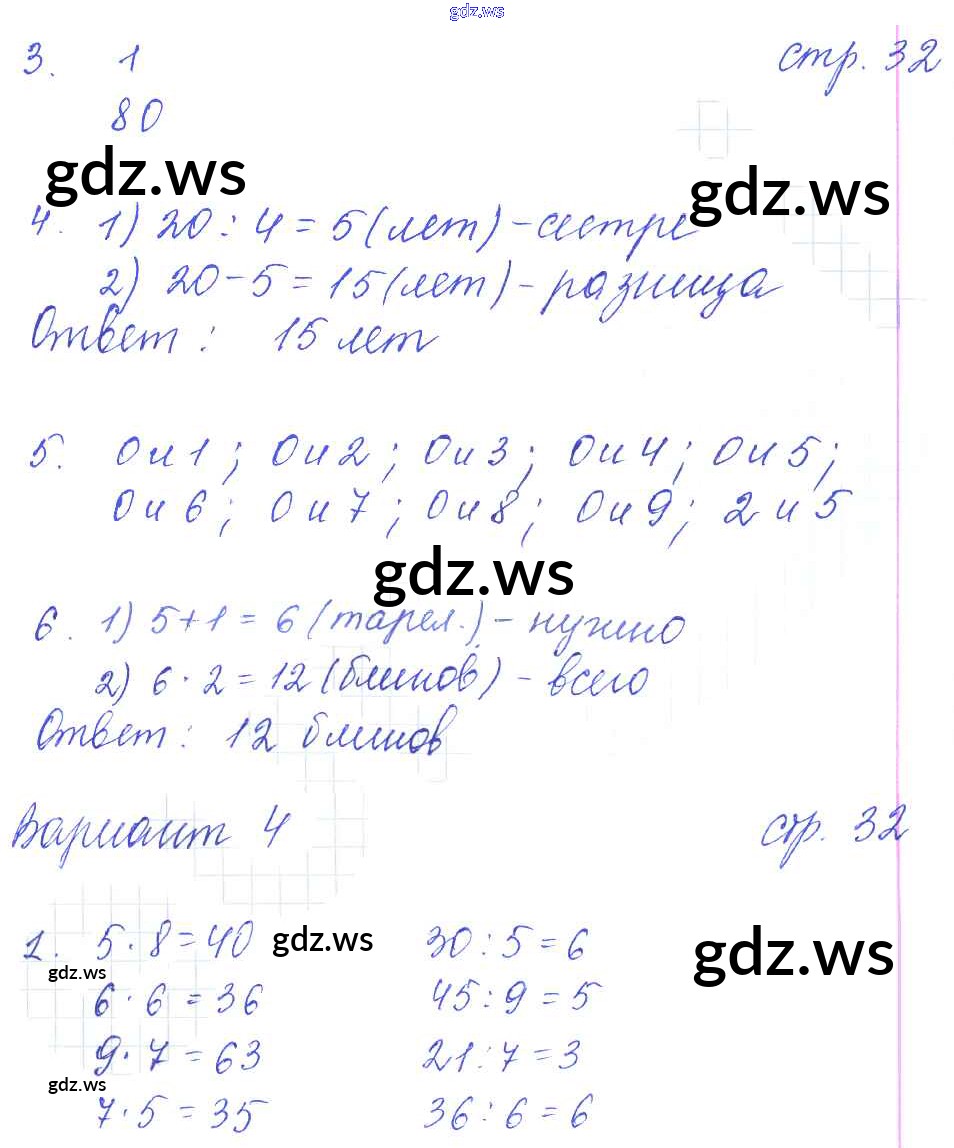 gdz.ws
3. 1 стр. 32
80
gdz.ws
gdz.ws
4. 1) 20 : 4 = 5 (лет) - сестре
2) 20 - 5 = 15 (лет) - разница
Ответ : 15 лет
5. 0 и 1 ; 0 и 2 ; 0 и 3 ; 0 и 4 ; 0 и 5 ;
0 и 6 ; 0 и 7 ; 0 и 8 ; 0 и 9 ; 2 и 5
gdz.ws
6. 1) 5 + 1 = 6 (тарел.) - нужно
2) 6 · 2 = 12 (блинов) - всего
Ответ : 12 блинов
Вариант 4 стр. 32
1. 5 · 8 = 40 gdz.ws 30 : 5 = 6 gdz.ws
gdz.ws
6 · 6 = 36 45 : 9 = 5
9 · 7 = 63 21 : 7 = 3
gdz.ws
7 · 5 = 35 36 : 6 = 6